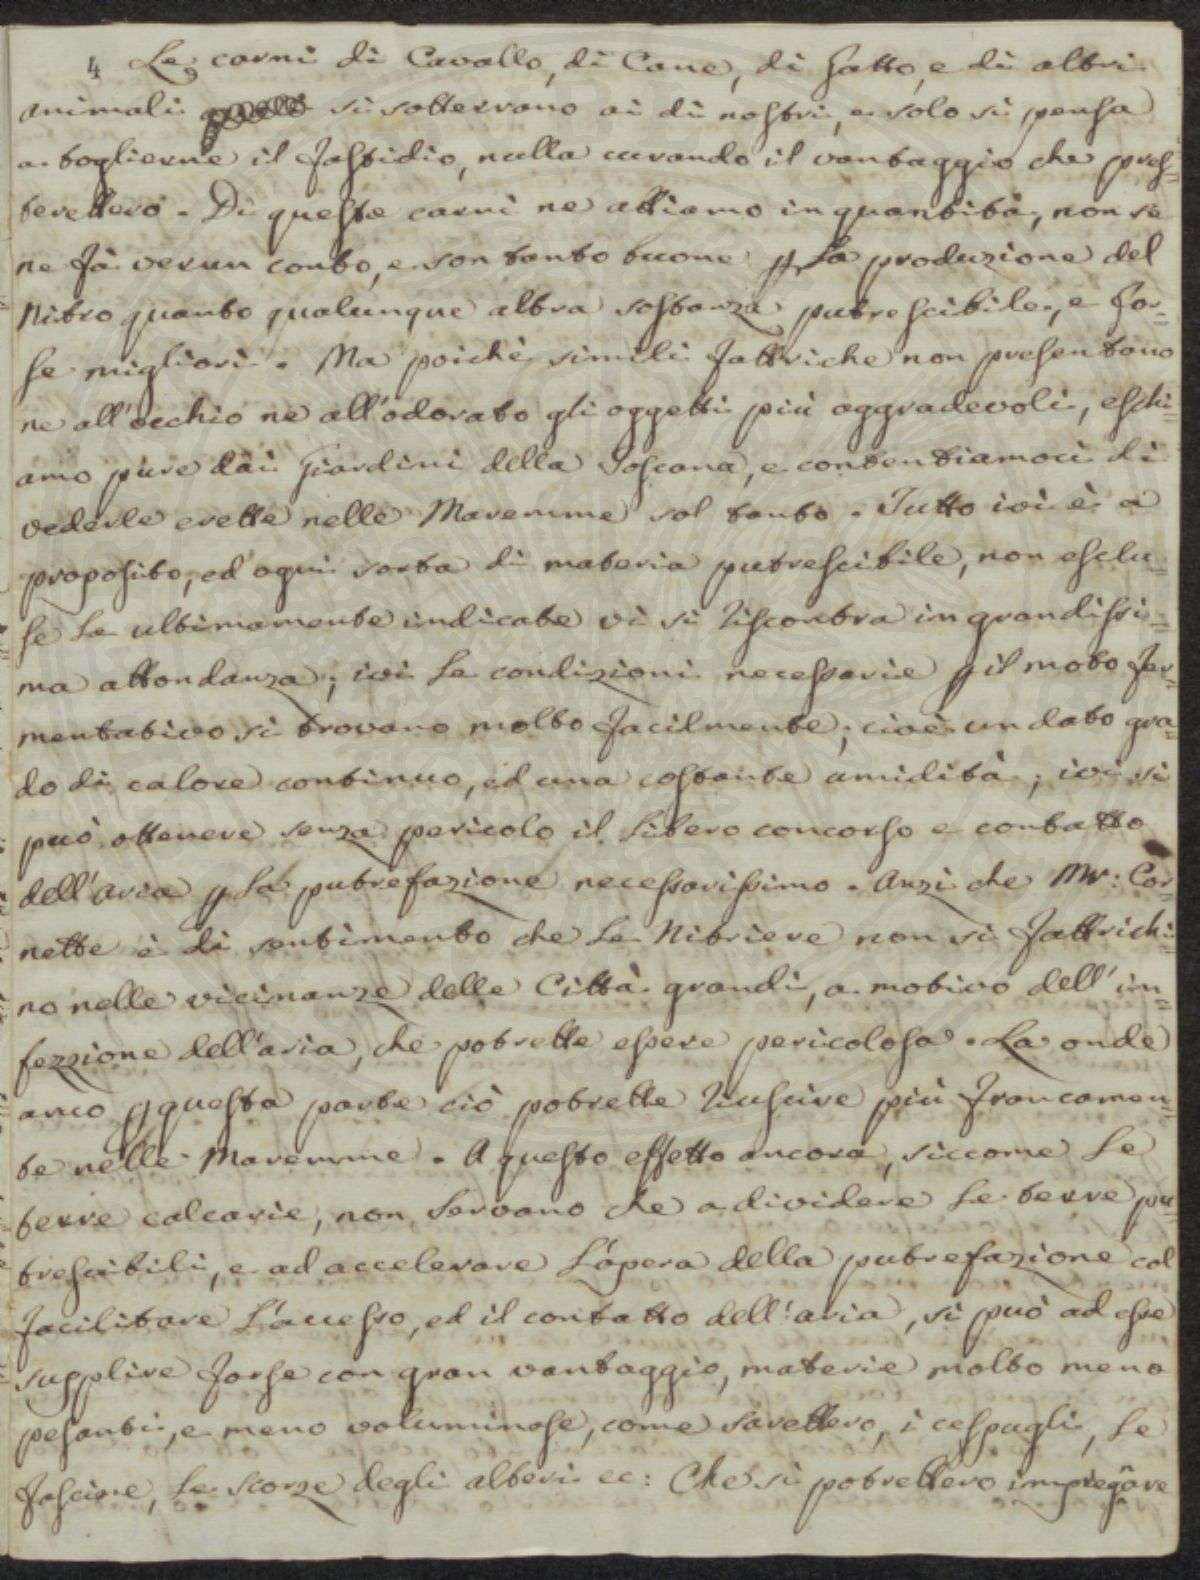 4 Le carni di Cavallo, di Cane, di Gatto, e di altri
animali si sotterrano ai dì nostri, e solo si pensa
a toglierne il fastidio, nulla curando il vantaggio che pres=
terebbero. Di queste carni ne abbiamo in quantità, non se
ne fà verun conto, e son tanto buone p la produzione del
Nitro quanto qualunque altra sostanza putrescibile, e for=
se migliori. Ma poichè simili fabbriche non presentano
ne all'occhio ne all'odorato gli oggetti più aggradevoli, eschi=
amo pure dai Giardini della Toscana, e contentiamoci di
vederle erette nelle Maremme sol tanto. Tutto ivi è a
proposito, ed ogni sorta di materia putrescibile, non esclu=
se le ultimamente indicate vi si riscontra in grandissi=
ma abbondanza; ivi le condizioni necessarie p il moto fer=
mentativo si trovano molto facilmente; cioè un dato gra=
do di calore continuo, ed una costante umidità; ivi si
può ottenere senza pericolo il libero concorso e contatto
dell'aria p la putrefazione necessarissimo. Anzi che Mr: Cor=
nette è di sentimento che le Nitriere non si fabbrichi=
no nelle vicinanze delle Città grandi, a motivo dell'in=
fezzione dell'aria, che potrebbe essere pericolosa. La onde
anco p questa parte ciò potrebbe riuscire più francamen=
te nelle Maremme. A questo effetto ancora, siccome le
terre calcarie, non servano che a dividere le terre pu=
trescibili, e ad accelerare l'opera della putrefazione col
facilitare l'accesso, ed il contatto dell'aria, si può ad esse
supplire forse con gran vantaggio, materie molto meno
pesanti, e meno voluminose, come sarebbero, i cespugli, le
fascine, le scorze degli alberi ec: Che si potrebbero impregãre